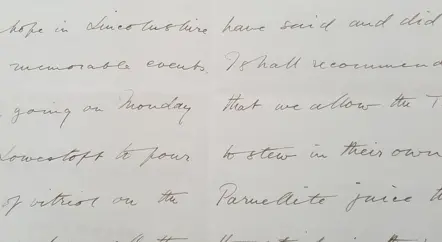 hope in Lincolnshire have said and did
memorable events. I shall recommend
going on Monday that we allow the T
Lowestoft to pour to stew in their own
of vitriol on the Parnellite juice t